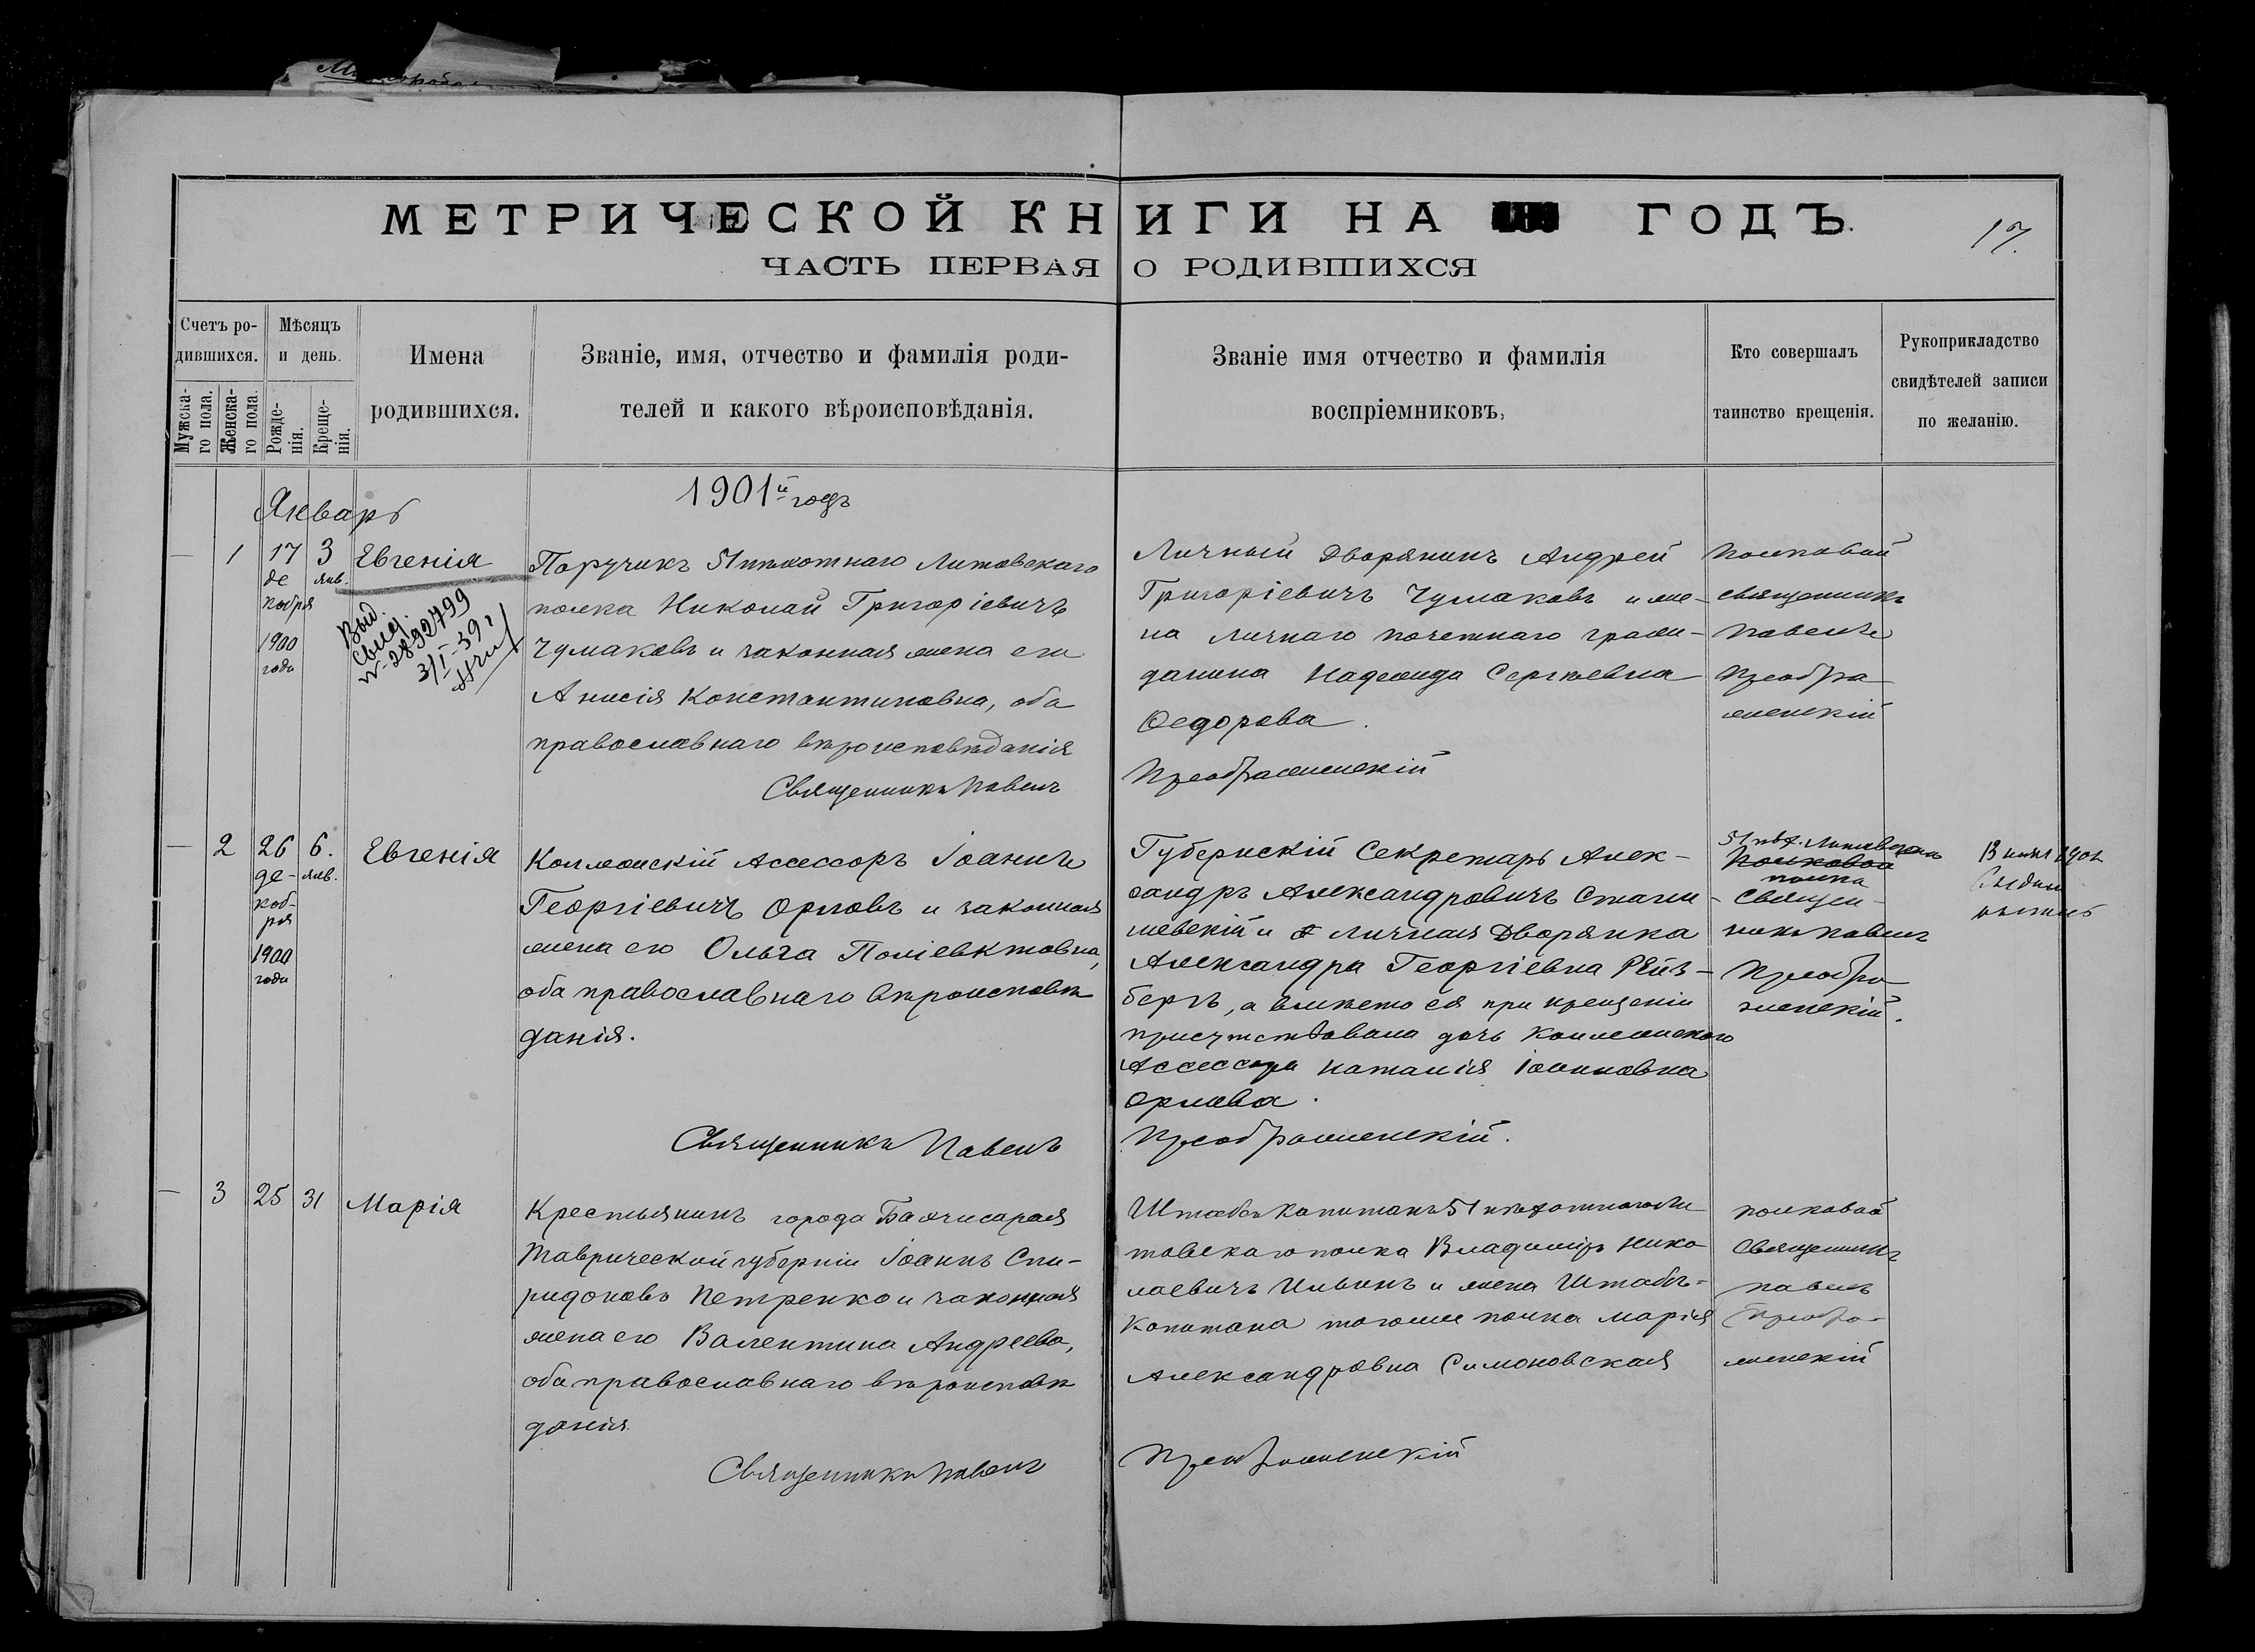 МЕТРИЧЕСКОЙ КНИГИ НА ГОДЪ.
17.
ЧАСТЬ ПЕРВАЯ О РОДИВШИХСЯ
Счетъ ро-
дившихся.
Мужска-
го пола.
Женска-
го пола.
Мѣсяцъ
и день.
Рожде-
нія.
Креще-
нія.
Имена
родившихся.
Званіе, имя, отчество и фамилія роди-
телей и какого вѣроисповѣданія.
Званіе имя отчество и фамилія
воспріемниковъ,
Кто совершалъ
таинство крещенія.
Рукоприкладство
свидѣтелей записи
по желанію.
Январь
1901й годъ
— 1 17 3 Евгенія
де янв.
кабря
1900
года
Выд.
свид.
№-2892799
3/I-39г
Поручикъ 51 пѣхотнаго Литовскаго
полка Николай Григоріевичъ
Чумаковъ и законная жена его
Анисія Константиновна, оба
православнаго вѣроисповѣданія
Священникъ Павелъ
Личный Дворянинъ Андрей
Григоріевичъ Чумаковъ и же-
на личнаго почетнаго граж-
данина Надежда Сергѣевна
Ѳедорова.
Преображенскій
Полковой
священникъ
Павелъ
Преобра-
женскій
— 2 26 6. Евгенія
де- янв.
каб-
ря
1900
года
Коллежскій Ассессоръ Іоаннъ
Георгіевичъ Орловъ и законная
жена его Ольга Поліевктовна,
оба православнаго вѣроисповѣ
данія.
Священникъ Павелъ
Губернскій Секретарь Алек-
сандръ Александровичъ
и личная Дворянка
Александра Георгіевна Рейз-
бергъ, а вмѣсто ея при крещеніи
присутствовала дочь Коллежскаго
Ассессора Наталія Іоанновна
Орлова.
Преображенскій.
51 пѣх. Литовскаго
Полковой
полка
Священ-
никъ Павелъ
Преобра
женскій.
1901
— 3 25 31 Марія
Крестьянинъ города Бахчисарая
Таврической губерніи Іоаннъ Спи-
ридоновъ Петренко и законная
жена его Валентина Андреева,
оба православнаго вѣроисповѣ
данія
Священникъ Павелъ
Штабсъ Капитанъ 51 пѣхотнаго Ли
товскаго полка Владиміръ Нико
лаевичъ Ильинъ и жена Штабсъ-
Капитана тогоже полка Марія
Александровна Симоновская
Преображенскій
полковой
Священникъ
павелъ
Преобра-
женскій